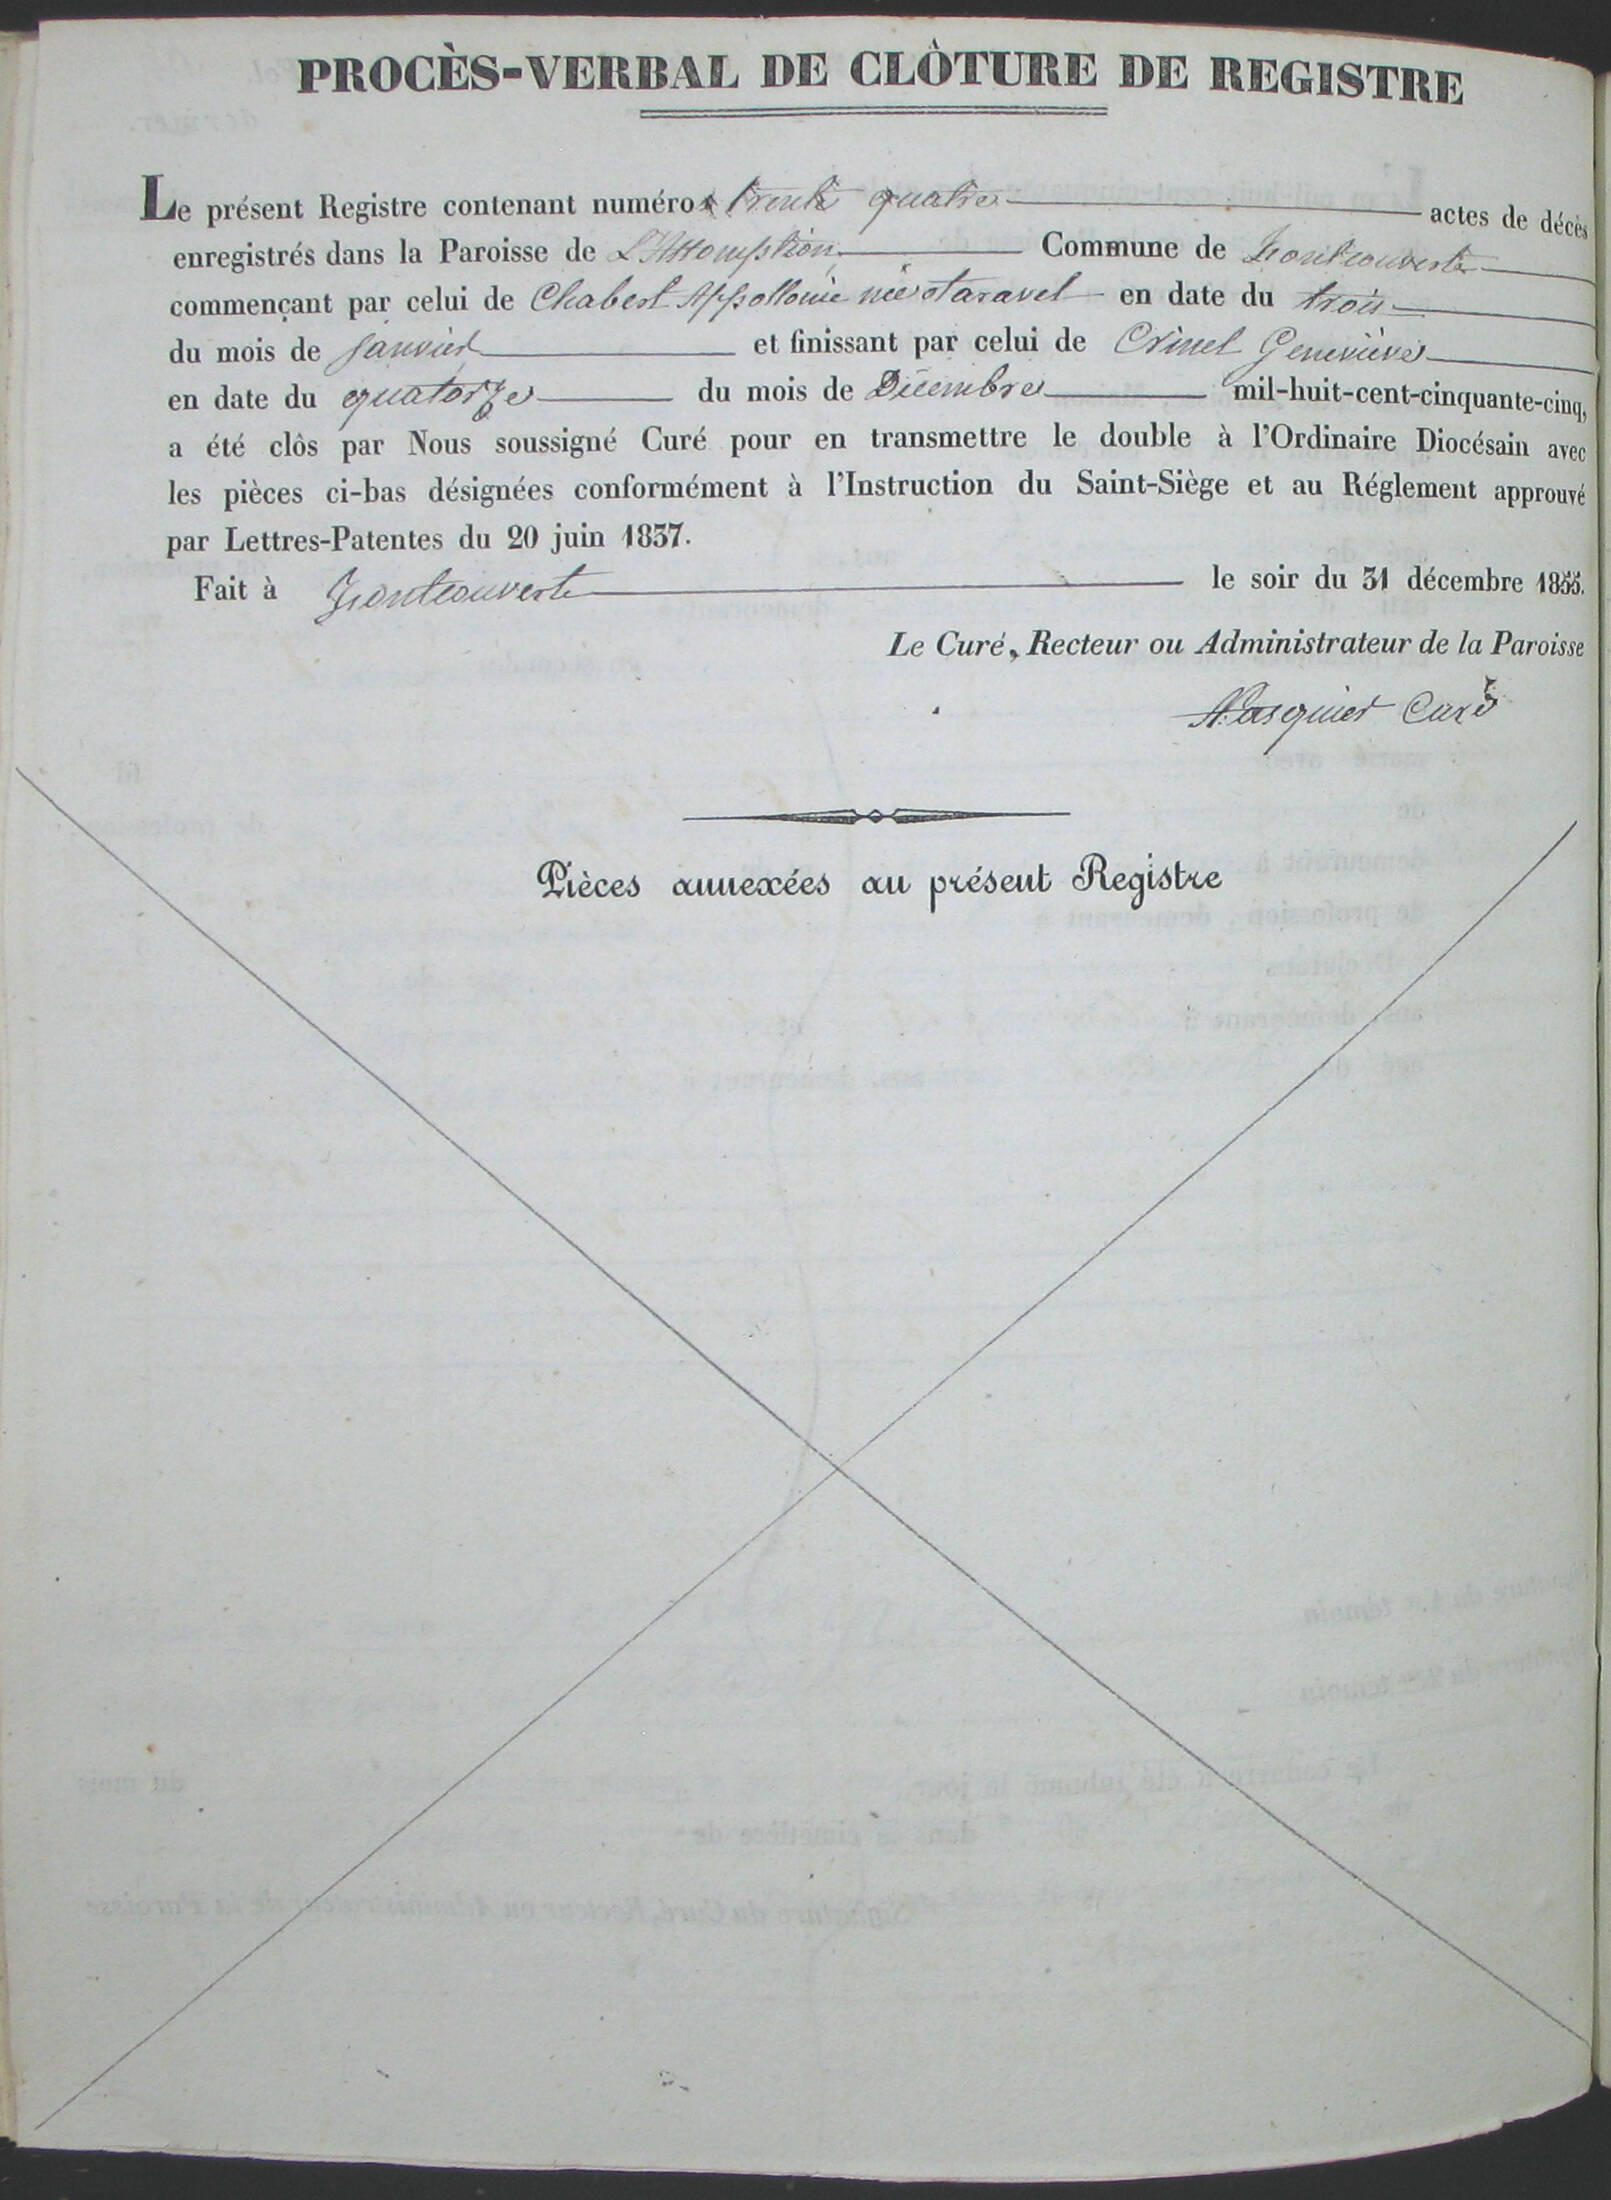 PROCÈS-VERBAL DE CLÔTURE DE REGISTRE
Le présent Registre contenant numéros trente quatre actes de décès
enregistrés dans la Paroisse de L'Assomption Commune de Fontcouverte
commençant par celui de Chabert Appollonie née Taravel en date du trois
du mois de Janvier et finissant par celui de Crinel Geneviève
en date du quatorze du mois de Décembre mil-huit-cent-cinquante-cinq,
a été clôs par Nous soussigné Curé pour en transmettre le double à l'Ordinaire Diocésain avec
les pièces ci-bas désignées conformément à l'Instruction du Saint-Siège et au Réglement approuvé
par Lettres-Patentes du 20 juin 1837.
Fait à Fontcouverte le soir du 31 décembre 1855.
Le Curé, Recteur ou Administrateur de la Paroisse
Pasquier Curé
Pièces annexées au présent Registre